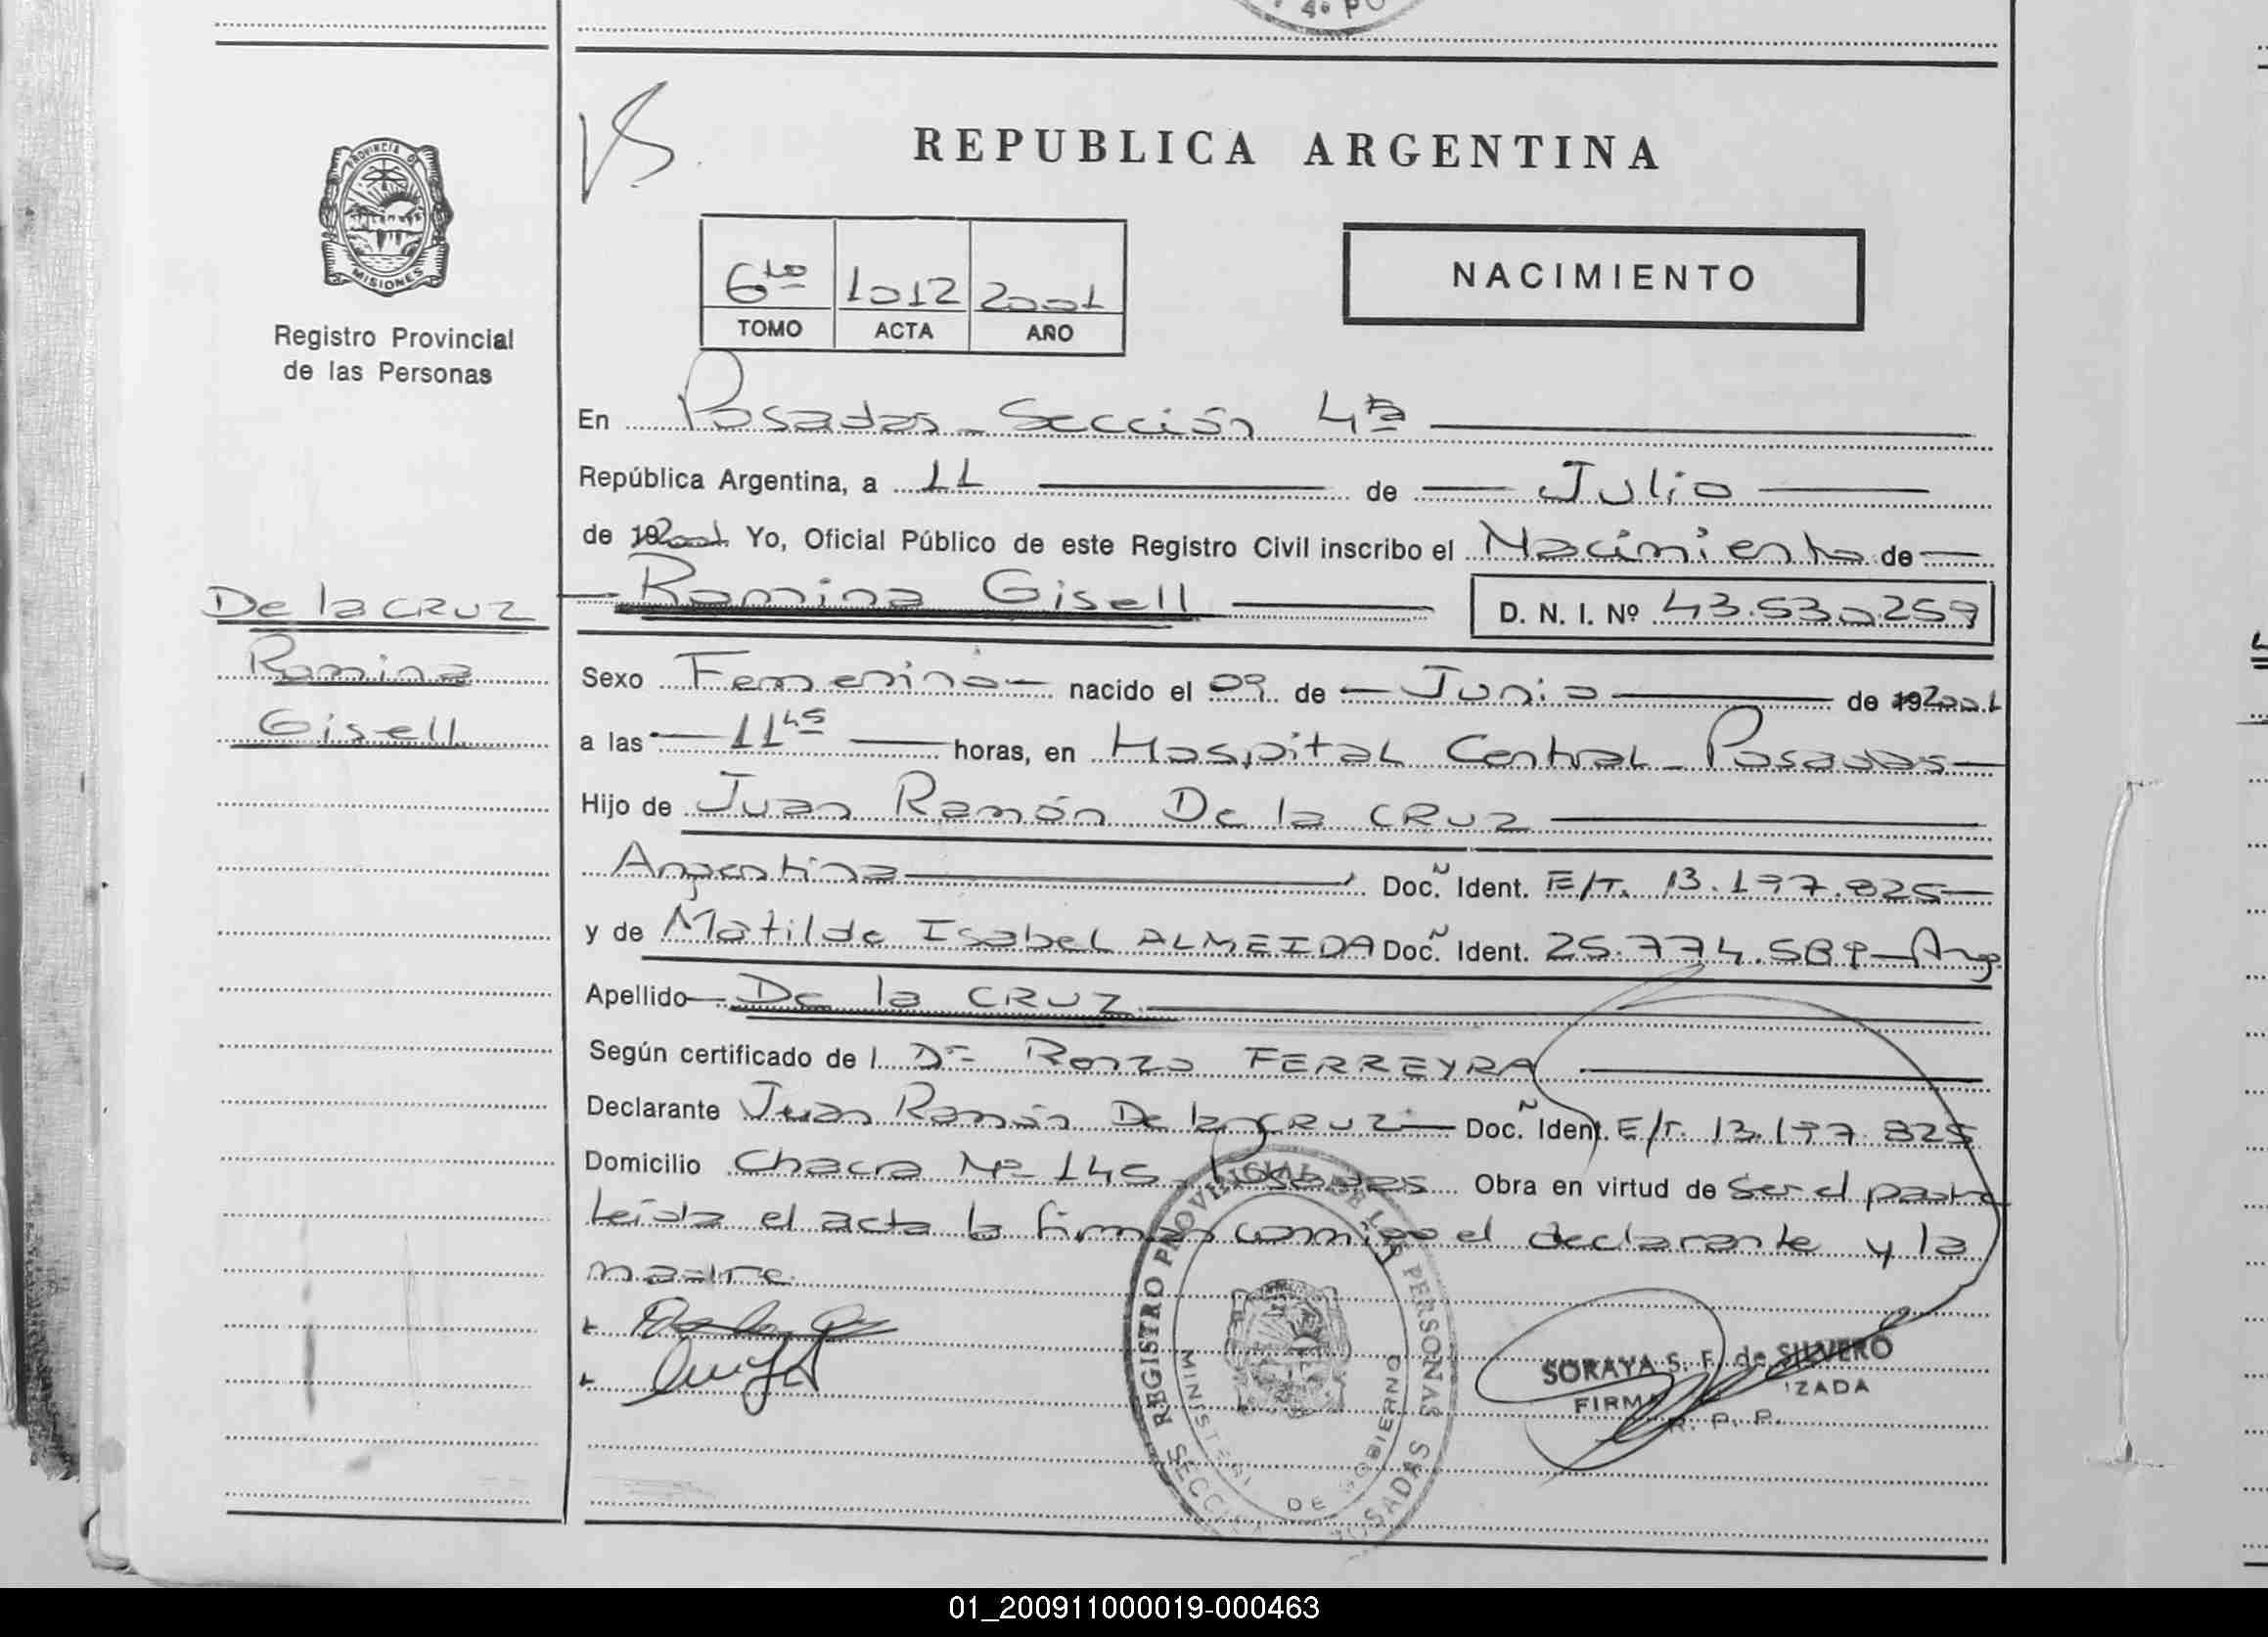 4º PO
REPUBLICA ARGENTINA
PROVINCIA DE
MISIONES
Registro Provincial
de las Personas
6to 1012 2001
TOMO ACTA AÑO
NACIMIENTO
En Posadas - Sección 4ta
República Argentina, a 11 de Julio
de 2001 Yo, Oficial Público de este Registro Civil inscribo el Nacimiento de
Romina Gisell D. N. I. Nº 43.530.259
De la CRUZ
Romina
Gisell
Sexo Femenino nacido el 09 de Junio de 192001
a las 11 45 horas, en Hospital Central - Posadas
Hijo de Juan Ramón De la CRUZ
Argentina Doc. Ident. E/T. 13.197.825
y de Matilde Isabel ALMEIDA Doc. Ident. 25.774.589 - Arg
Apellido De la CRUZ
Según certificado de l Dr FERREYRA
Declarante Juan Ramón De la CRUZ Doc. Ident. E/T. 13.197.825
Domicilio Chacra Nº 145 Posadas Obra en virtud de ser el padre
Leída el acta la firman conmigo el declarante y la
madre
REGISTRO PROVINCIAL DE LAS PERSONAS
MINISTERIO DE GOBIERNO
SECCION POSADAS
SORAYA S. F. de SILVERO
FIRMA IZADA
R. P. P.
01_200911000019-000463